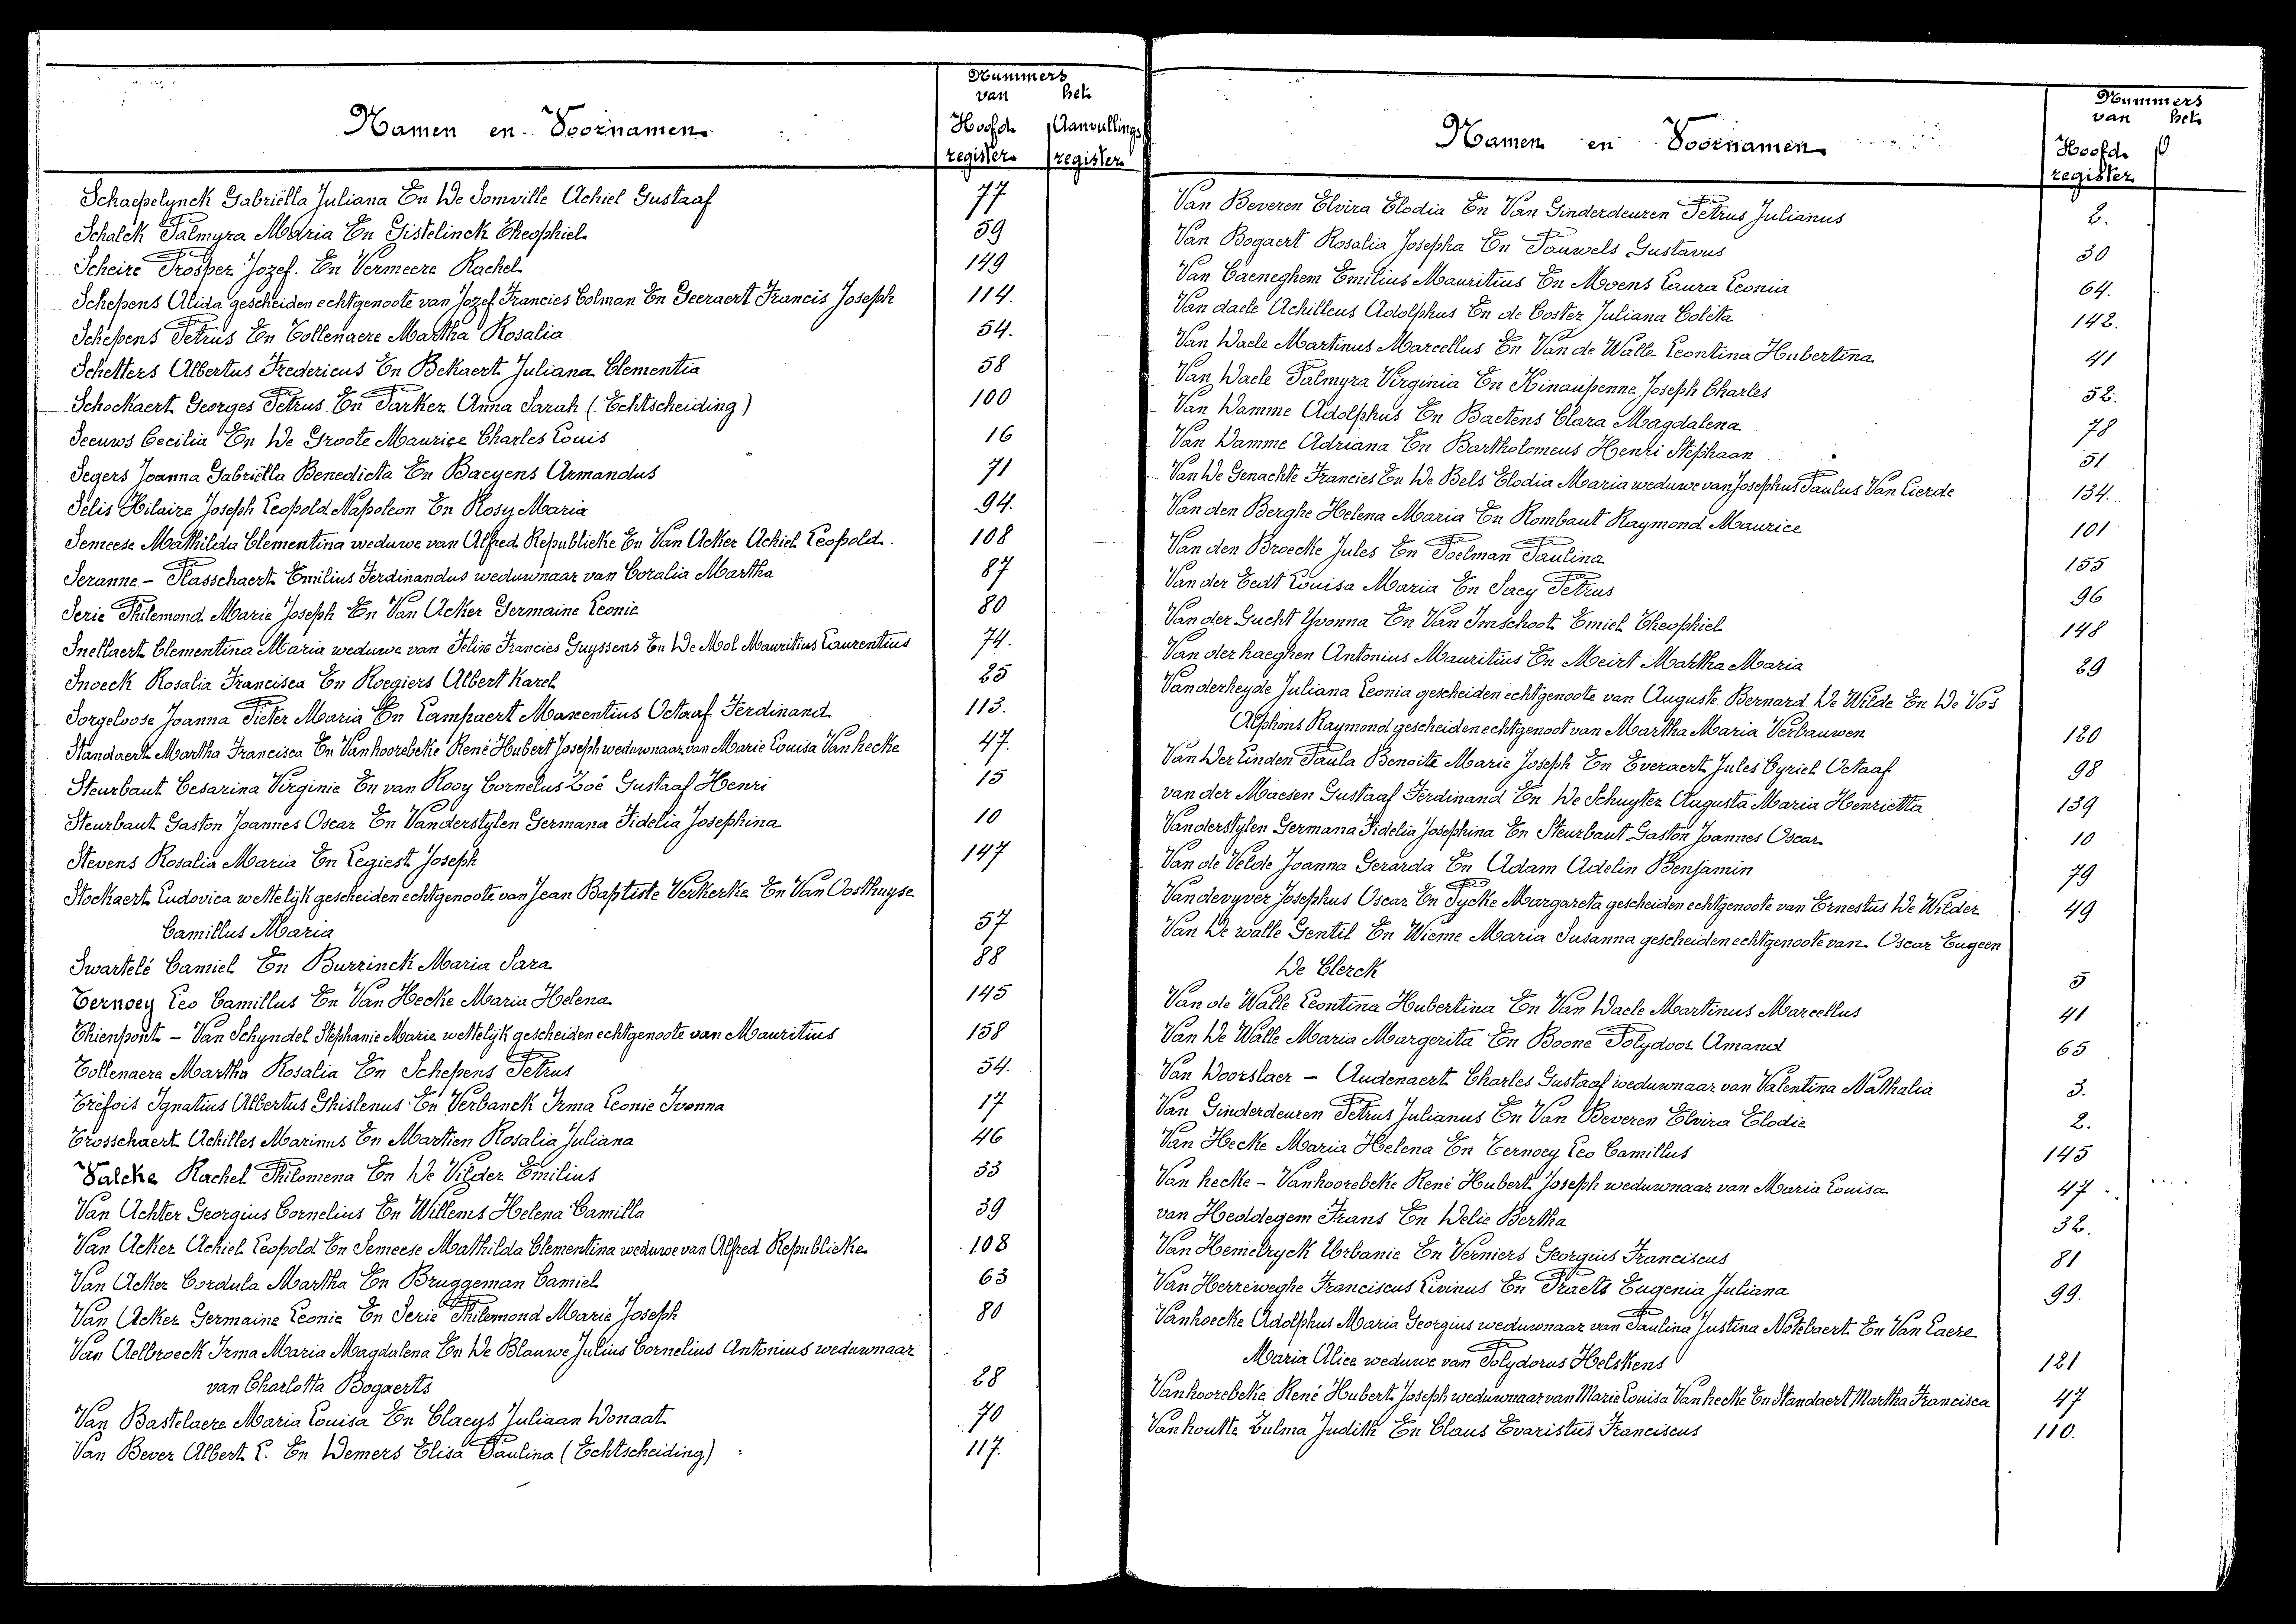 Nummers
van het
Namen en Voornamen
Hoofd- Aanvullings
register register
Schaepelynck Gabriëlla Juliana En De Somville Achiel Gustaaf 77
Schalck Palmyra Maria En Gistelinck Theophiel 59
Scheire Prosper Jozef. En Vermeere Rachel 149
Schepens Alida gescheiden echtgenoote van Jozef Francies Colman En Geeraert Francis Joseph 114.
Schepens Petrus En Tollenaere Martha Rosalia 54.
Schetters Albertus Fredericus En Bekaert Juliana Clementia 58
Schockaert Georges Petrus En Parker Anna Sarah (Echtscheiding) 100
Seeuws Cecilia En De Groote Maurice Charles Louis 16
Segers Joanna Gabriëlla Benedicta En Baeyens Armandus 71
Selis Hilaire Joseph Leopold Napoleon En Rosy Maria 94.
Semeese Mathilda Clementina weduwe van Alfred Republicke En Van Acker Achiel Leopold. 108
Seranne - Plasschaert Emilius Ferdinandus weduwnaar van Coralia Martha 87
Serie Philemond Marie Joseph En Van Acker Germaine Leonie 80
Snellaert Clementina Maria weduwe van Felix Francies Guyssens En De Mol Mauritius Laurentius 74.
Snoeck Rosalia Francisca En Roegiers Albert Karel 25
Sorgeloose Joanna Pieter Maria En Lampaert Maxentius Octaaf Ferdinand 113.
Standaert Martha Francisca En Vanhoorebeke René Hubert Joseph weduwnaar van Marie Louisa Van hecke 47.
Steurbaut Cesarina Virginie En van Rooy Cornelus Zoë Gustaaf Henri 15
Steurbaut Gaston Joannes Oscar En Vanderstylen Germana Fidelia Josephina 10
Stevens Rosalia Maria En Legiest Joseph 147
Stockaert Ludovica wettelijk gescheiden echtgenoote van Jean Baptiste Verkerke En Van Oosthuyse
Camillus Maria 57
Swartelé Camiel En Burrinck Maria Sara 88
Ternoey Leo Camillus En Van Hecke Maria Helena 145
Thienpont - Van Schyndel Stephanie Marie wettelijk gescheiden echtgenoote van Mauritius 158
Tollenaere Martha Rosalia En Schepens Petrus 54.
Tréfois Ignatius Albertus Ghislenus En Verbanck Irma Leonie Ivonna 17
Trosschaert Achilles Marinus En Martien Rosalia Juliana 46
Valcke Rachel Philomena En De Vilder Emilius 33
Van Achter Georgius Cornelius En Willems Helena Camilla 39
Van Acker Achiel Leopold En Semeese Mathilda Clementina weduwe van Alfred Republicke 108
Van Acker Cordula Martha En Bruggeman Camiel 63
Van Acker Germaine Leonie En Serie Philemond Marie Joseph 80
Van Aelbroeck Irma Maria Magdalena En De Blauwe Julius Cornelius Antonius weduwnaar
van Charlotta Bogaerts 28
Van Bastelaere Maria Louisa En Claeys Juliaan Donaat 70
Van Bever Albert L. En Demers Elisa Paulina (Echtscheiding) 117.
Nummers
van het
Namen en Voornamen
Hoofd-
register
Van Beveren Elvira Elodia En Van Ginderdeuren Petrus Julianus 2.
Van Bogaert Rosalia Josepha En Pauwels Gustavus 30
Van Caeneghem Emilius Mauritius En Moens Laura Leonia 64.
Van daele Achilleus Adolphus En de Coster Juliana Coleta 142.
Van Daele Martinus Marcellus En Van de Walle Leontina Hubertina 41
Van Daele Palmyra Virginia En Kinaupenne Joseph Charles 52.
Van Damme Adolphus En Baetens Clara Magdalena 78
Van Damme Adriana En Bartholomeus Henri Stephaan 51
Van De Genachte Francies En De Bels Elodia Maria weduwe van Josephus Paulus Van Lierde 134.
Van den Berghe Helena Maria En Rombaut Raymond Maurice 101
Van den Broecke Jules En Poelman Paulina 155
Van der Eedt Louisa Maria En Saey Petrus 96
Van der Gucht Yvonna En Van Imschoot Emiel Theophiel 148
Van der haeghen Antonius Mauritius En Meirt Martha Maria 29
Vanderheyde Juliana Leonia gescheiden echtgenoote van Auguste Bernard De Wilde En De Vos
Alphons Raymond gescheiden echtgenoot van Martha Maria Verbauwen 120
Van Der Linden Paula Benoite Marie Joseph En Everaert Jules Cyriel Octaaf 98
van der Maesen Gustaaf Ferdinand En De Schuyter Augusta Maria Henrietta 139
Vanderstylen Germana Fidelia Josephina En Steurbaut Gaston Joannes Oscar 10
Van de Velde Joanna Gerarda En Adam Adelin Benjamin 79
Vandevyver Josephus Oscar En Pycke Margareta gescheiden echtgenoote van Ernestus De Wilder 49
Van De walle Gentil En Wieme Maria Susanna gescheiden echtgenoote van Oscar Eugeen
De Clerck 5
Van de Walle Leontina Hubertina En Van Daele Martinus Marcellus 41
Van De Walle Maria Margerita En Boone Polydoor Amand 65
Van Doorslaer - Audenaert Charles Gustaaf weduwnaar van Valentina Nathalia 3.
Van Ginderdeuren Petrus Julianus En Van Beveren Elvira Elodie 2.
Van Hecke Maria Helena En Ternoey Leo Camillus 145
Van hecke - Vanhoorebeke René Hubert Joseph weduwnaar van Maria Louisa 47
van Heddegem Frans En Delie Bertha 32.
Van Hemelryck Urbanie En Verniers Georgius Franciscus 81
Van Herreweghe Franciscus Livinus En Praets Eugenia Juliana 99.
Vanhoecke Adolphus Maria Georgius weduwnaar van Paulina Justina Notebaert En Van Laere
Maria Alice weduwe van Polydorus Helskens 121
Vanhoorebeke René Hubert Joseph weduwnaar van Marie Louisa Van hecke En Standaert Martha Francisca 47
Vanhoutte Zulma Judith En Claus Evaristus Franciscus 110.